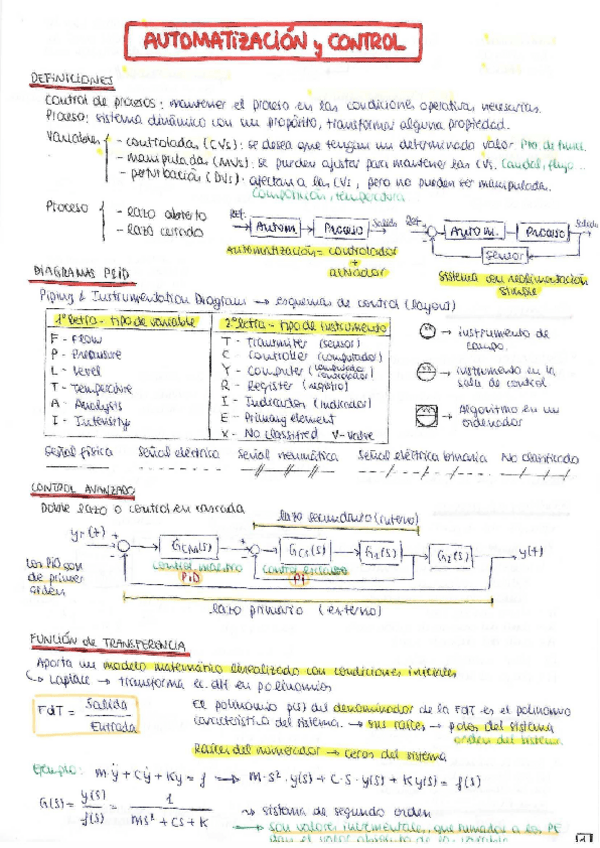 AUTOMATIZACIÓN y CONTROL
DEFINICIONES
Control de procesos: mantener el proceso en las condiciones operativas necesarias.
Proceso: sistema dinámico con un propósito, transformar alguna propiedad.
Variables - controladas (CVs): se desea que tengan un determinado valor
- manipuladas (MVs): se pueden ajustar para mantener las CVs. Caudal, flujo ..
- perturbación (DVs): afectan a las CVs, pero no pueden ser manipulada.
Composición, temperatura
Proceso - lazo abierto
- lazo cerrado
Ref. Autom. Proceso Salida
Ref. Autom. Proceso Salida
Sensor
Automatización = controlador
+
actuador
Sistema con realimentación
simple
DIAGRAMAS P&ID
Piping & Instrumentation Diagram → esquemas de control (layout)
1ª letra - tipo de variable
F - Flow
P - Pressure
L - Level
T - Temperature
A - Analysis
I - Intensity
2ª letra - tipo de instrumento
T - Transmiter (sensor)
C - Controller (computador)
Y - Computer
R - Register (registro)
I - Indicador (indicador)
E - Primary element
X - No classified V-valve
→ instrumento de
campo.
→ instrumento en la
sala de control
→ Algoritmo en un
ordenador
Señal física Señal eléctrica Señal neumática Señal eléctrica binaria No clasificado
CONTROL AVANZADO
Doble lazo o control en cascada
lazo secundario (interno)
yr(t) Gcm(s) Gc1(s) G1(s) G2(s) y(t)
control maestro control esclavo
PiD Pi
Los PiD son
de primer
orden
lazo primario (externo)
FUNCIÓN de TRANSFERENCIA
Aporta un modelo matemático linealizado con condiciones iniciales
↳ Laplace → transforma ec. dif en polinomios
FdT = Salida / Entrada
El polinomio p(s) del denominador de la FdT es el polinomio
característico del sistema. → sus raíces → polos del sistema
orden del sistema
Raíces del numerador → ceros del sistema
Ejemplo: M·ÿ + Cẏ + Ky = f → M·s²·y(s) + C·s·y(s) + K y(s) = f(s)
G(s) = y(s) / f(s) = 1 / (Ms² + Cs + K) → sistema de segundo orden
→ son valores incrementales, que sumados a los PE
dan el valor absoluto de la variable
1